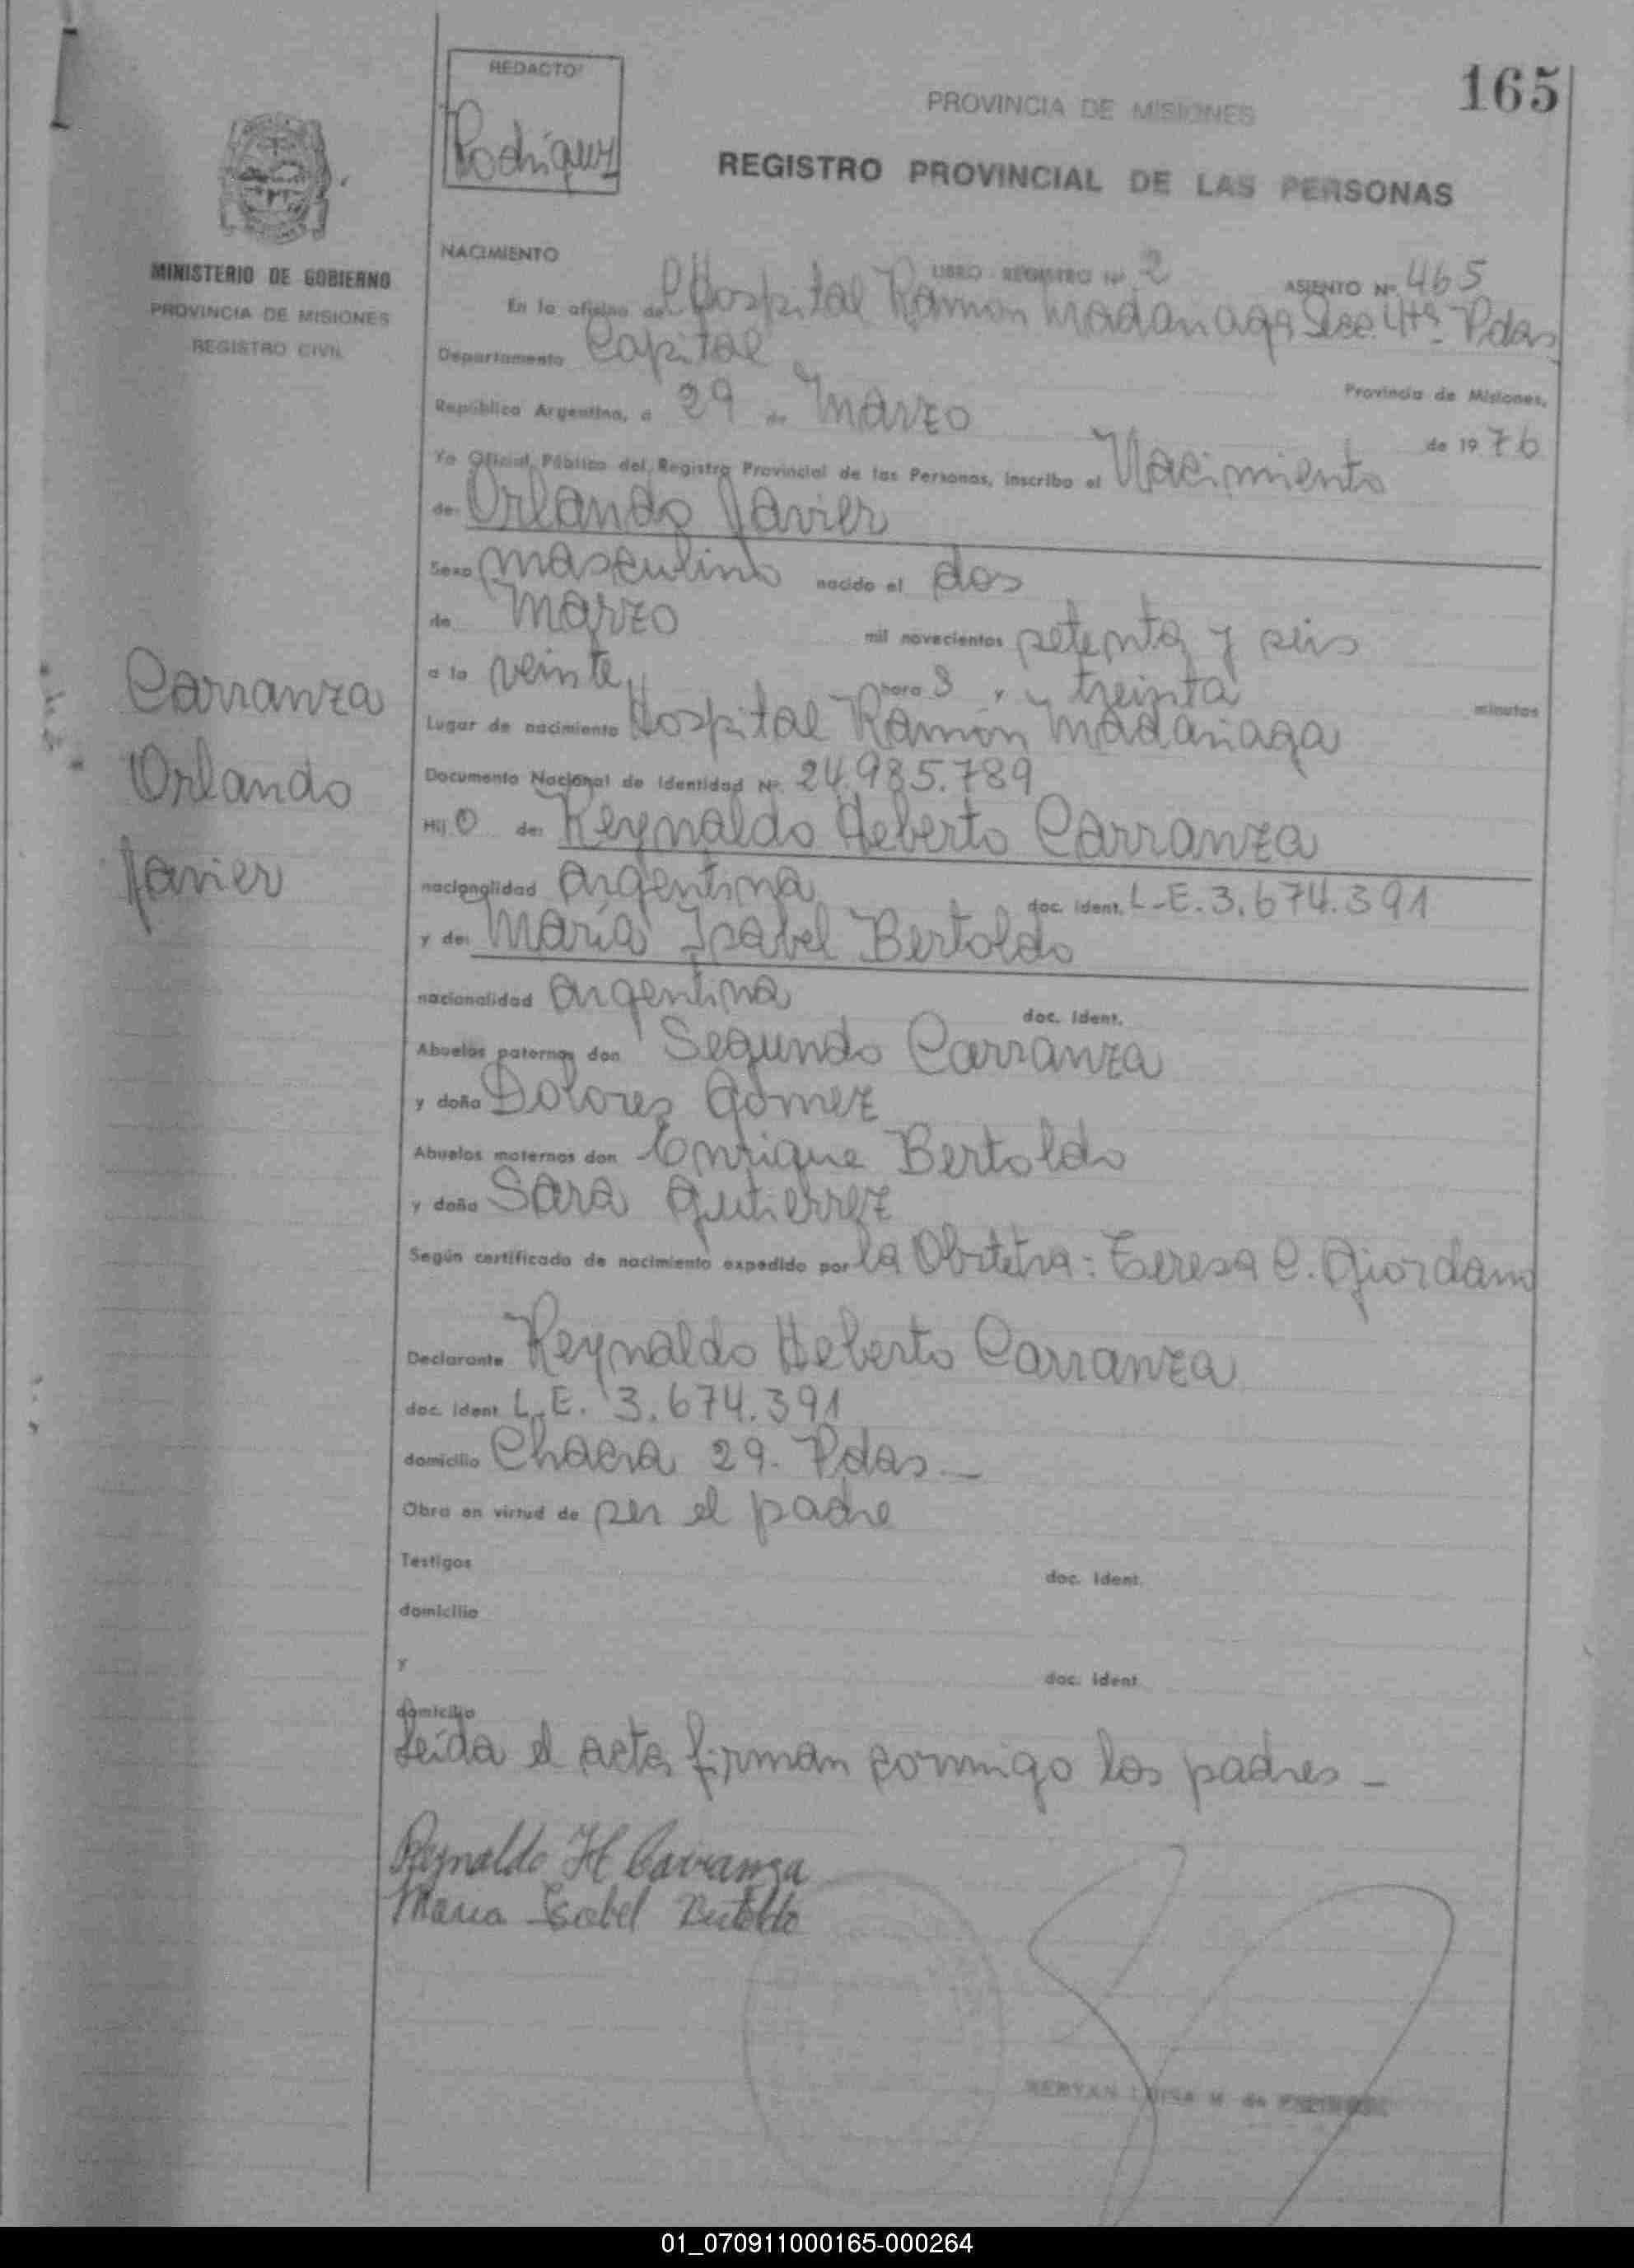 165
REDACTO:
Rodriguez
PROVINCIA DE MISIONES
REGISTRO PROVINCIAL DE LAS PERSONAS
MINISTERIO DE GOBIERNO
PROVINCIA DE MISIONES
REGISTRO CIVIL
NACIMIENTO
LIBRO REGISTRO Nº 2 ASIENTO Nº 465
En la oficina del Hospital Ramón Madariaga Secc. 4ta. Pdas
Departamento Capital Provincia de Misiones,
República Argentina, a 29 de Marzo de 1976
Yo Oficial Público del Registro Provincial de las Personas, inscribo el Nacimiento
de: Orlando Javier
Sexo masculino nacido el dos
de Marzo mil novecientos setenta y seis
a la veinte hora s y treinta minutos
Lugar de nacimiento Hospital Ramón Madariaga
Documento Nacional de Identidad Nº 24.985.789
Hij o de: Reynaldo Heberto Carranza
nacionalidad argentina doc. ident. L-E. 3.674.391
y de: María Isabel Bertoldo
nacionalidad argentina doc. ident.
Abuelos paternos don Segundo Carranza
y doña Dolores Gómez
Abuelos maternos don Enrique Bertoldo
y doña Sara Gutierrez
Según certificado de nacimiento expedido por la Obstétra: Teresa C. Giordano
Declarante Reynaldo Heberto Carranza
doc. ident. L.E. 3.674.391
domicilio Chacra 29. Pdas_
Obra en virtud de ser el padre
Testigos doc. ident.
domicilio
y doc. ident.
domicilio
Leída el acta, firman conmigo los padres_
Reynaldo H Carranza
Maria Isabel Bertoldo
Carranza
Orlando
Javier
LUISA M de
01_070911000165-000264